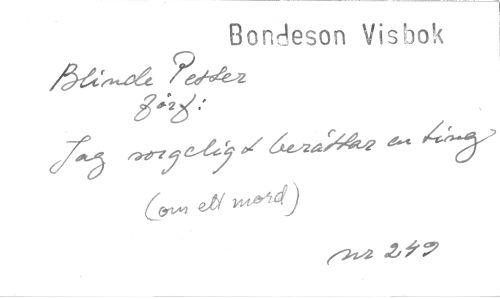 Bondeson Visbok
Blinde Petter
förf:
Jag sorgeligt berättar en ting
(om ett mord)
nr 249